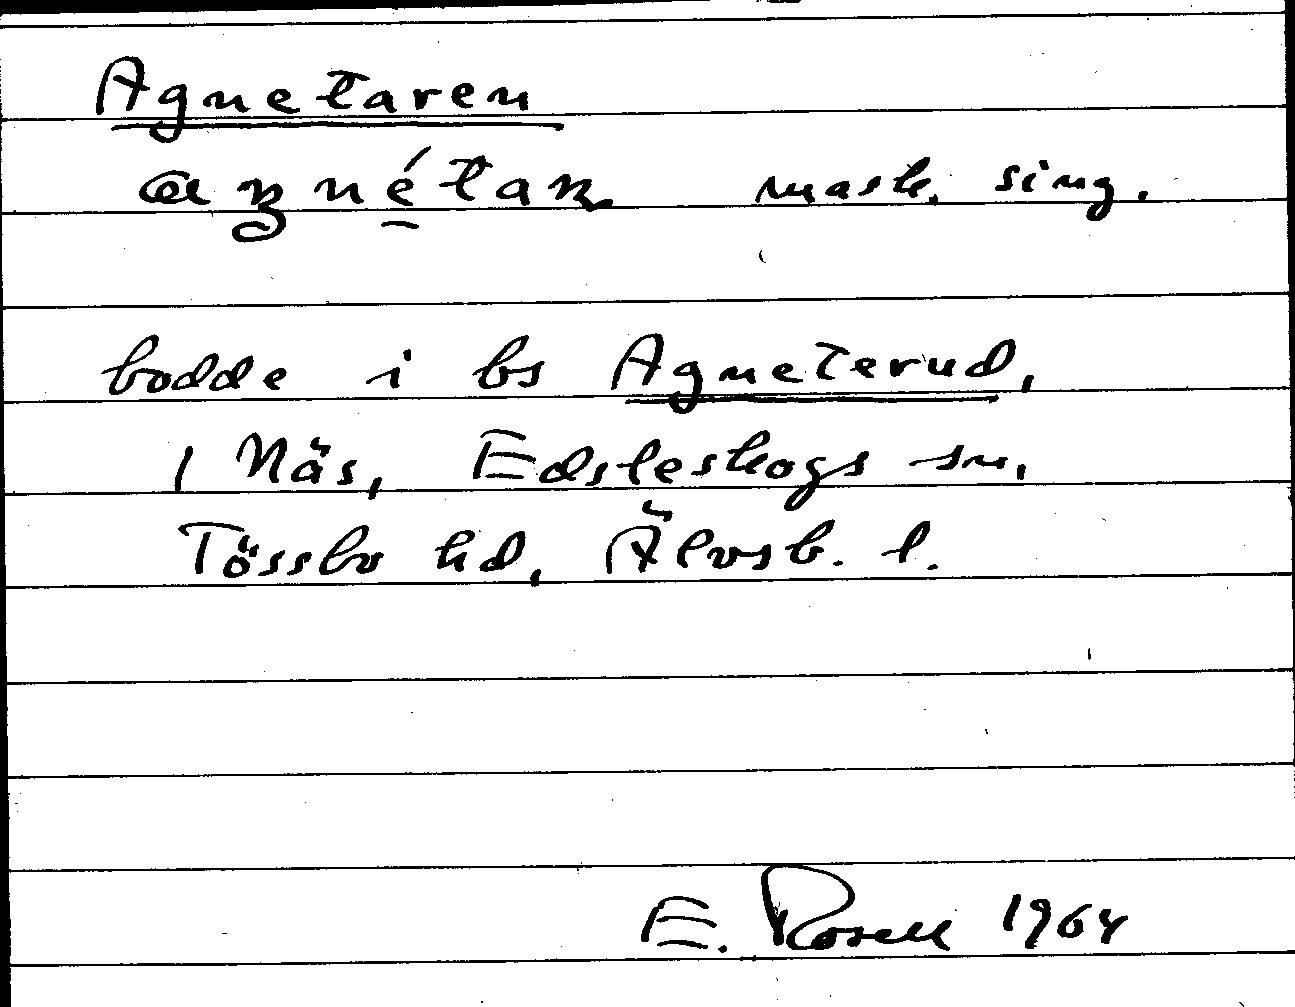 Agnetaren
mask. sing.
bodde i bs Agneterud,
1 Näs, Edsleskogs sn,
Tössbo hd, Älvsb. l.
E. Rosell 1964